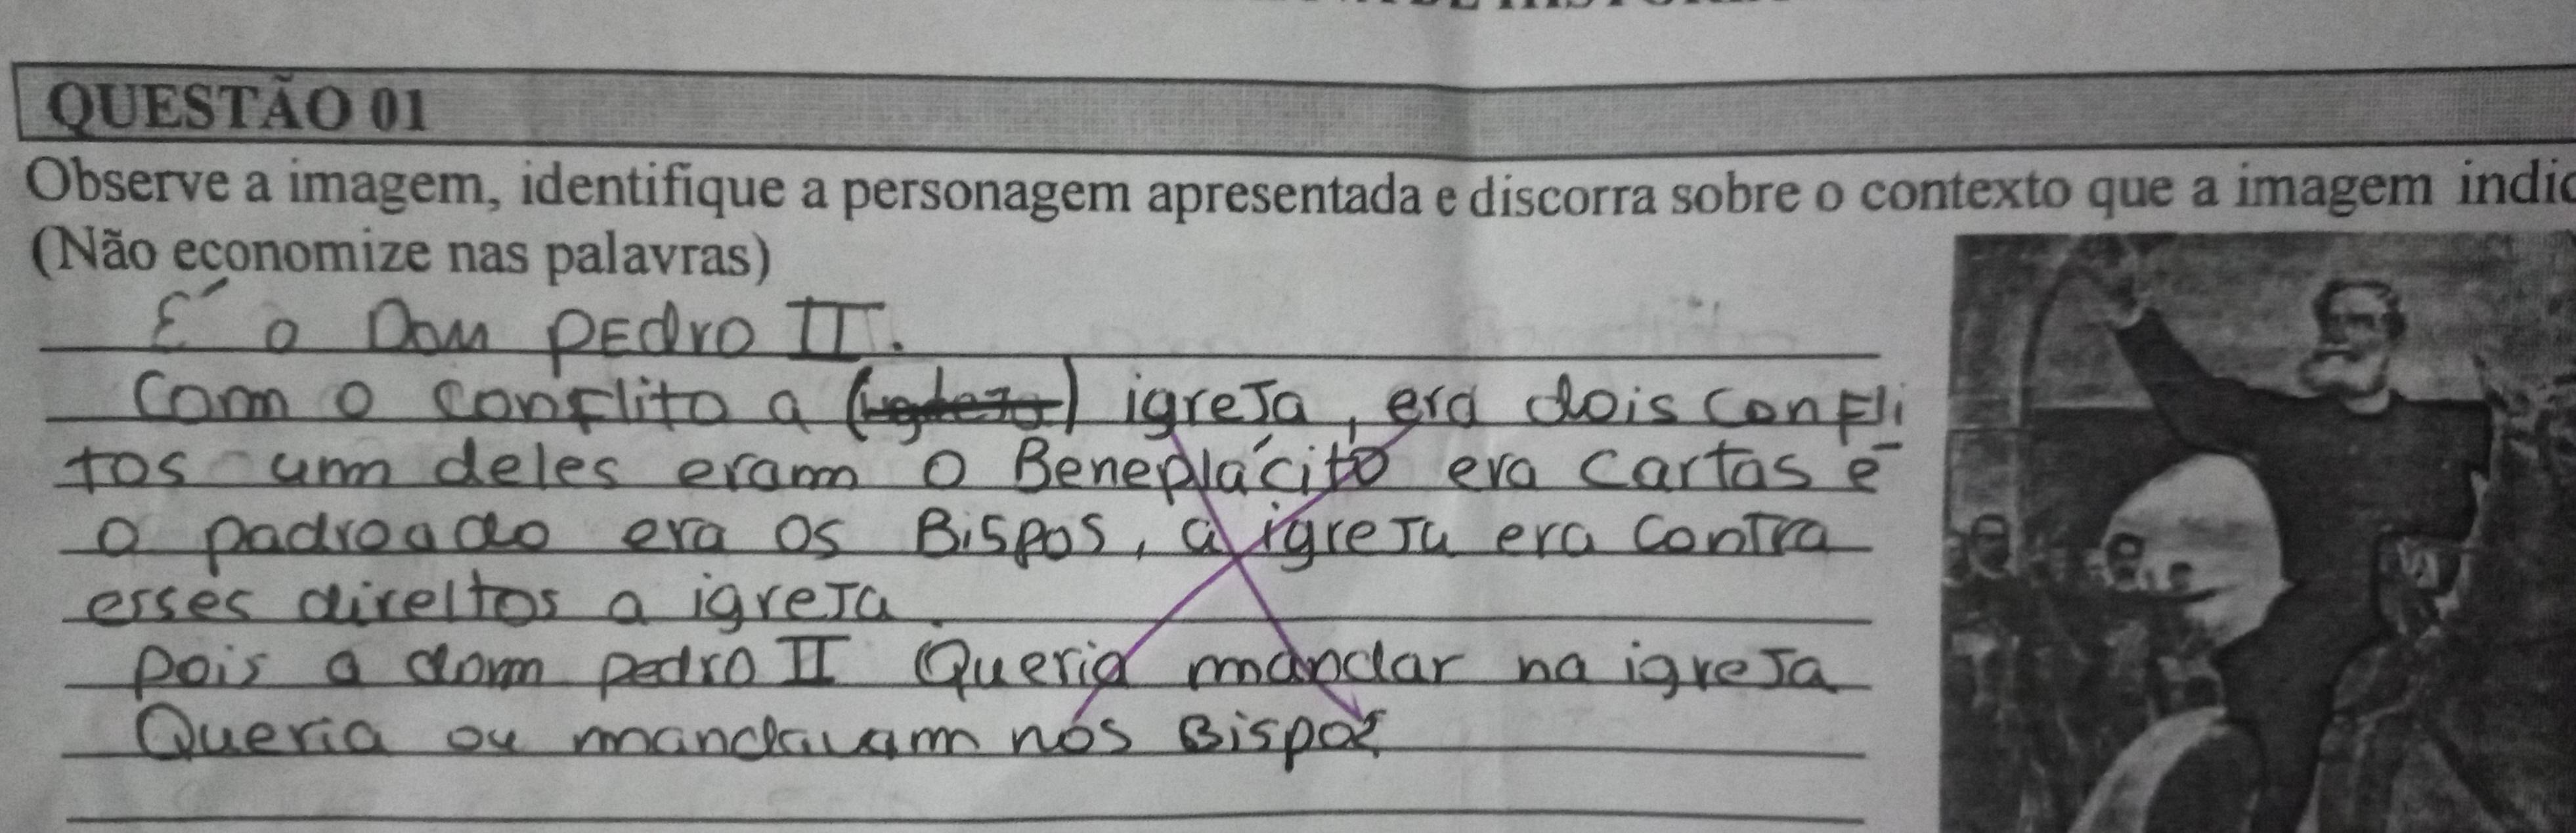 QUESTÃO 01
Observe a imagem, identifique a personagem apresentada e discorra sobre o contexto que a imagem
(Não economize nas palavras)
É o Dom PEdro II.
Com o conflito a () igreja, era dois confli
tos um deles eram o Beneplácito era cartas e
o padroado era os Bispos, a igreja era contra
esses direitos a igreja.
pois o dom pedro II Queria mandar na igreja
Queria ou mandavam nos Bispos